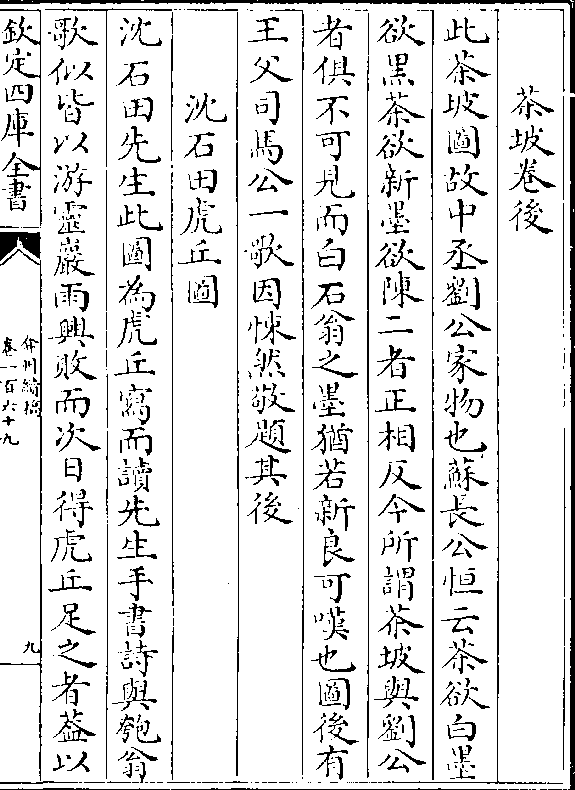 茶坡卷後
此茶坡圖故中丞劉公家物也蘇長公恒云茶欲白墨
欲黑茶欲新墨欲陳二者正相反今所謂茶坡與劉公
者俱不可見而白石翁之墨猶若新良可嘆也圖後有
王父司馬公一歌因悚然敬題其後
沈石田虎丘圖
沈石田先生此圖為虎丘寫而讀先生手書詩與匏翁
歌似皆以游靈巖雨興敗而次日得虎丘足之者葢以
欽定四庫全書
弇州續稿
卷一百六十九
九